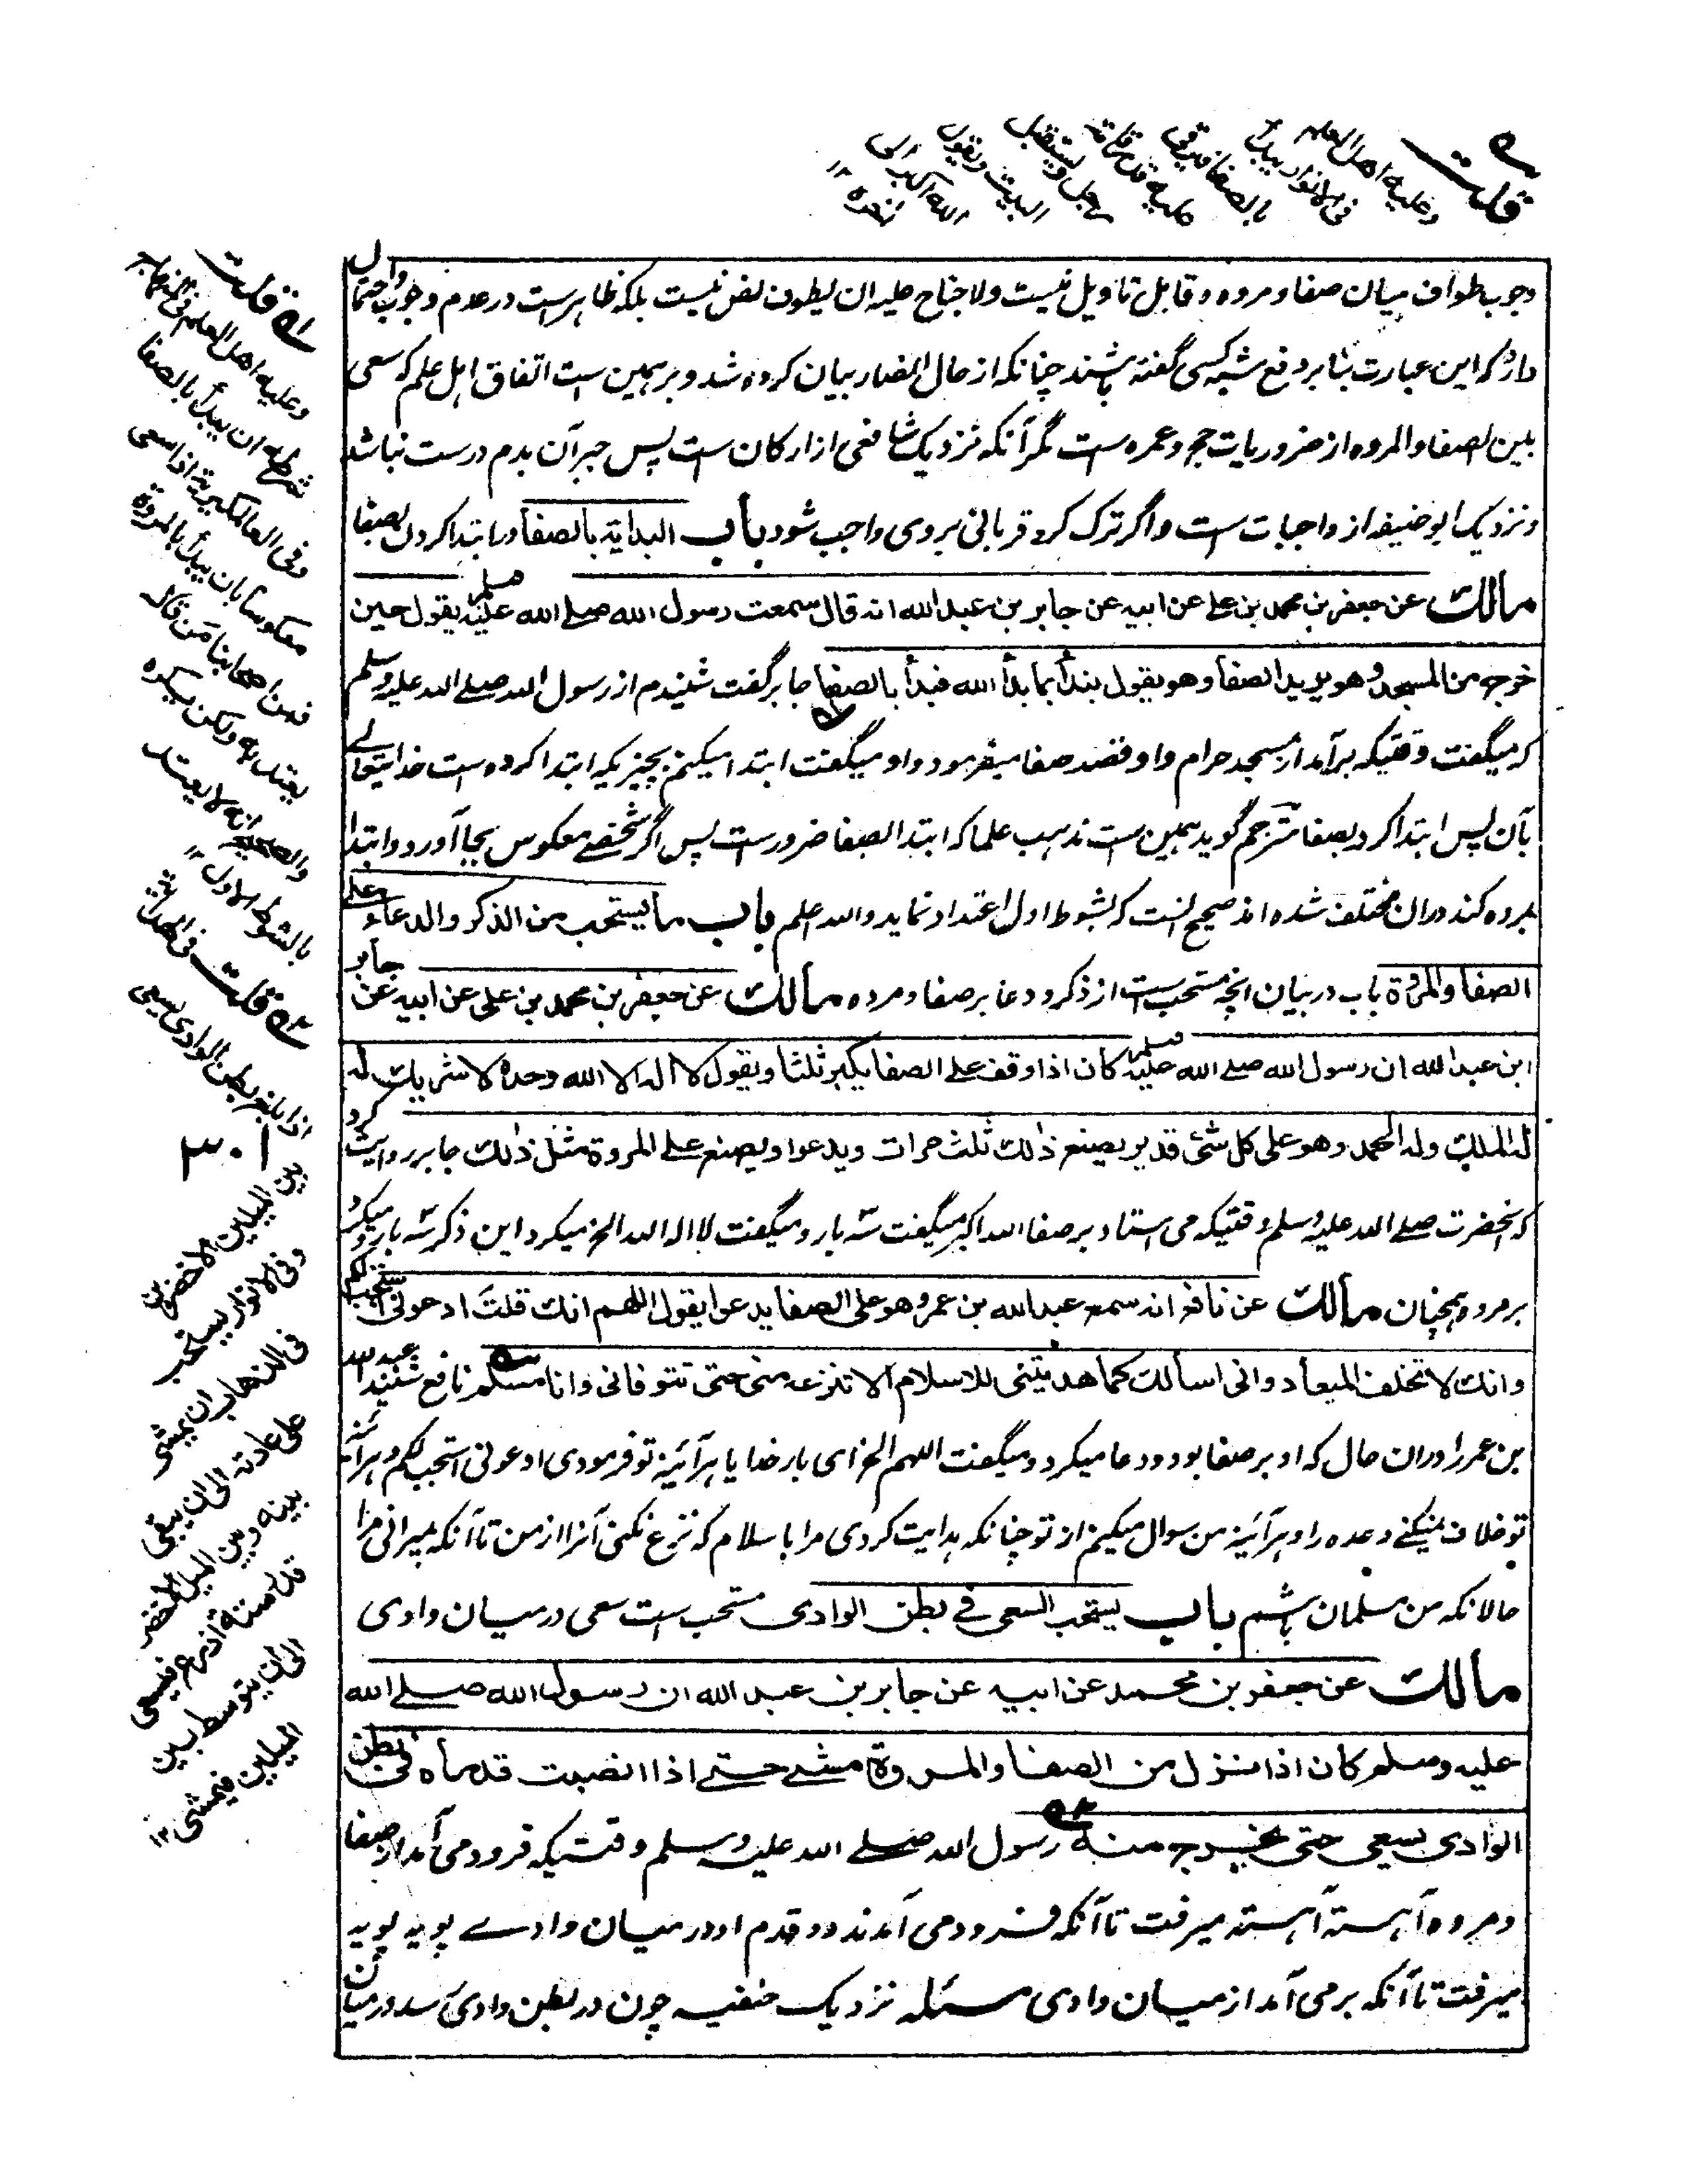 قلت
وعليه اهل العلم
في الانوار يبدأ
بالصفا فيرقى
عليه قدر قامة
رجل ويستقبل
البيت ويقول
الله اكبر الى
آخره ١٢
وجوب طواف میان صفا و مروه و قابل تاویل نیست ولا جناح علیه ان یطوف نص نیست بلکه ظاهرست در عدم وجوب و احتمال
دارد که این عبارت بنابر دفع شبه کسی گفته باشند چنانکه از حال انصار بیان کرده شد و بر همین ست اتفاق اهل علم که سعی
بین الصفا والمروه از ضروریات حج و عمره ست مگر آنکه نزدیک شافعی از ارکان ست پس جبر آن بدم درست نباشد
و نزدیک ابو حنیفه از واجبات ست و اگر ترک کرد قربانی بروی واجب شود باب البداية بالصفا ابتدا کردن بصفا
مالك عن جعفر بن محمد بن علي عن ابيه عن جابر بن عبد الله انه قال سمعت رسول الله صلى الله عليه وسلم يقول حين
خرج من المسجد وهو يريد الصفا وهو يقول نبدأ بما بدأ الله فبدأ بالصفا جابر گفت شنیدم از رسول الله صلی الله علیه وسلم
که میگفت وقتیکه برآمد از مسجد حرام و او قصد صفا میفرمود و او میگفت ابتدا میکنم بچیزیکه ابتدا کرده ست خدایتعالے
بآن پس ابتدا کرد بصفا مترجم گوید همین ست مذهب علما که ابتدا الصفا ضرورست پس اگر شخصے معکوس بجا آورد و ابتدا
بمروه کند دران مختلف شده اند صحیح آنست که بشوط اول اعتداد نماید والله اعلم باب ما يستحب من الذكر والدعاء على
الصفا والمروة باب در بیان آنچه مستحب ست از ذکر و دعا بر صفا و مروه مالك عن جعفر بن محمد بن علي عن ابيه عن جابر
ابن عبد الله ان رسول الله صلى الله عليه وسلم كان اذا وقف على الصفا يكبر ثلثا ويقول لا اله الا الله وحده لا شريك له
له الملك وله الحمد وهو على كل شئ قدير يصنع ذلك ثلث مرات ويدعوا ويصنع على المروة مثل ذلك جابر روایت کرد
که آنحضرت صلے الله علیه وسلم وقتیکه می استاد بر صفا الله اکبر میگفت سه بار و میگفت لا اله الا الله الخ میکرد این ذکر سه بار و میکرد
بر مروه همچنان مالك عن نافع انه سمع عبد الله بن عمر وهو على الصفا يدعوا يقول اللهم انك قلت ادعوني استجب لكم
وانك لا تخلف الميعاد واني اسألك كما هديتني للاسلام الا تنزعه مني حتى تتوفاني وانا مسلم نافع شنید عبد الله
بن عمر را دران حال که او بر صفا بود و دعا میکرد و میگفت اللهم الخ ای بار خدایا هر آئینه تو فرمودی ادعونی استجب لکم و هر آئینه
تو خلاف نمیکنے وعده را و هر آئینه من سوال میکنم از تو چنانکه هدایت کردی مرا باسلام که نزع نکنی آنرا از من تا آنکه بمیرانی مرا
حالانکه من مسلمان باشم باب يستحب السعي في بطن الوادي مستحب ست سعی در میان وادی
مالك عن جعفر بن محمد عن ابيه عن جابر بن عبد الله ان رسول الله صلى الله
عليه وسلم كان اذا نزل من الصفا والمروة مشى حتى اذا انصبت قدماه في بطن
الوادي سعى حتى يخرج منه رسول الله صلے الله علیه وسلم وقتیکه فرود می آمد از صفا
و مروه آهسته آهسته میرفت تا آنکه فرود می آمدند دو قدم او در میان وادے پویه پویه
میرفت تا آنکه برمی آمد از میان وادی مسئله نزدیک حنفیه چون در بطن وادی رسد در میان
قلت
وعليه اهل العلم في المنهاج
شرطه ان يبدأ بالصفا
وفي العالمكيرية اذا سعى
معكوسا بان يبدأ بالمروة
فمن اصحابنا من قال
يعتد به ولكن يكره
والصحيح انه لا يعتد
بالشوط الاول ١٢
قلت
اذا بلغ بطن الوادي يسعى
٣٠١
بين الميلين الاخضرين
وفي الانوار يستحب
في الذهاب ان يمشي
على عادته الى ان يبقى
بينه وبين الميل الاخضر
قدر ستة اذرع فيسعى
الى ان يتوسط بين
الميلين فيمشي ١٢